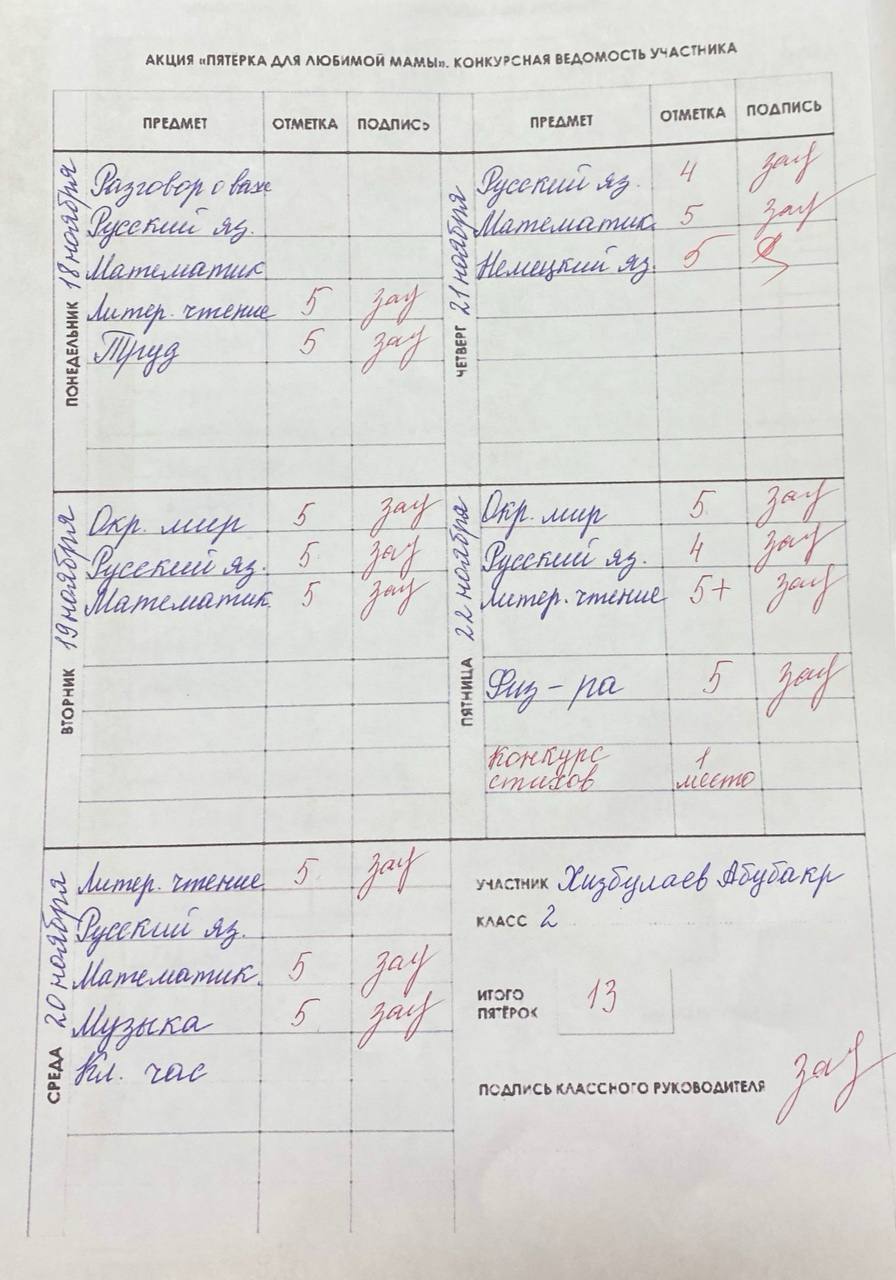 АКЦИЯ «ПЯТЕРКА ДЛЯ ЛЮБИМОЙ МАМЫ». КОНКУРСНАЯ ВЕДОМОСТЬ УЧАСТНИКА
ПРЕДМЕТ ОТМЕТКА ПОДПИСЬ
ПОНЕДЕЛЬНИК 18 ноября
Разговор о важ
Русский яз.
Математик
Литер. чтение 5 зау
Труд 5 зау
ВТОРНИК 19 ноября
Окр. мир 5 зау
Русский яз. 5 зау
Математик. 5 зау
СРЕДА 20 ноября
Литер. чтение 5 зау
Русский яз.
Математик. 5 зау
Музыка 5 зау
Кл. час
ПРЕДМЕТ ОТМЕТКА ПОДПИСЬ
ЧЕТВЕРГ 21 ноября
Русский яз. 4 зау
Математик. 5 зау
Немецкий яз. 5
ПЯТНИЦА 22 ноября
Окр. мир 5 зау
Русский яз. 4 зау
Литер. чтение 5+ зау
Физ-ра 5 зау
Конкурс 1
стихов место
УЧАСТНИК Хизбулаев Абубакр
КЛАСС 2
ИТОГО 13
ПЯТЁРОК
ПОДПИСЬ КЛАССНОГО РУКОВОДИТЕЛЯ зау